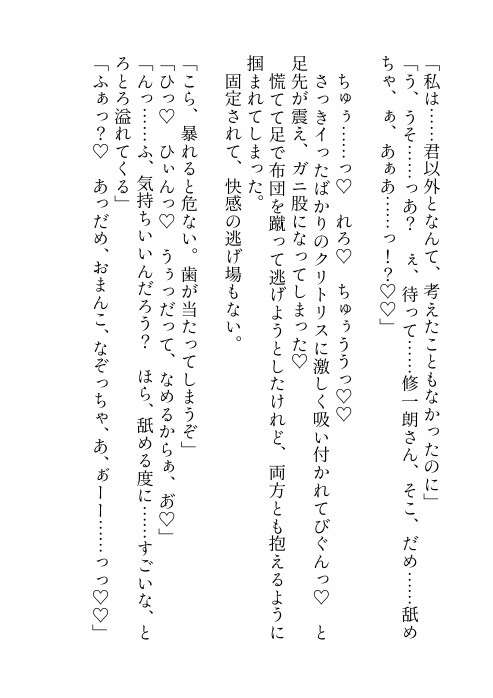 「私は……君以外となんて、考えたこともなかったのに」
「う、うそ……っあ？　ぇ、待って……修一朗さん、そこ、だめ……舐め
ちゃ、ぁ、あぁあ……っ！？♡♡」
ちゅぅ……っ♡　れろ♡　ちゅぅううっ♡♡
さっきイったばかりのクリトリスに激しく吸い付かれてびぐんっ♡　と
足先が震え、ガニ股になってしまった♡
慌てて足で布団を蹴って逃げようとしたけれど、両方とも抱えるように
掴まれてしまった。
固定されて、快感の逃げ場もない。
「こら、暴れると危ない。歯が当たってしまうぞ」
「ひっ♡　ひぃんっ♡　うぅっだって、なめるからぁ、あ゙♡」
「んっ……ふ、気持ちいいんだろう？　ほら、舐める度に……すごいな、と
ろとろ溢れてくる」
「ふぁっ？♡　あっだめ、おまんこ、なぞっちゃ、あ、ぁ゙ーー……っっ♡♡」